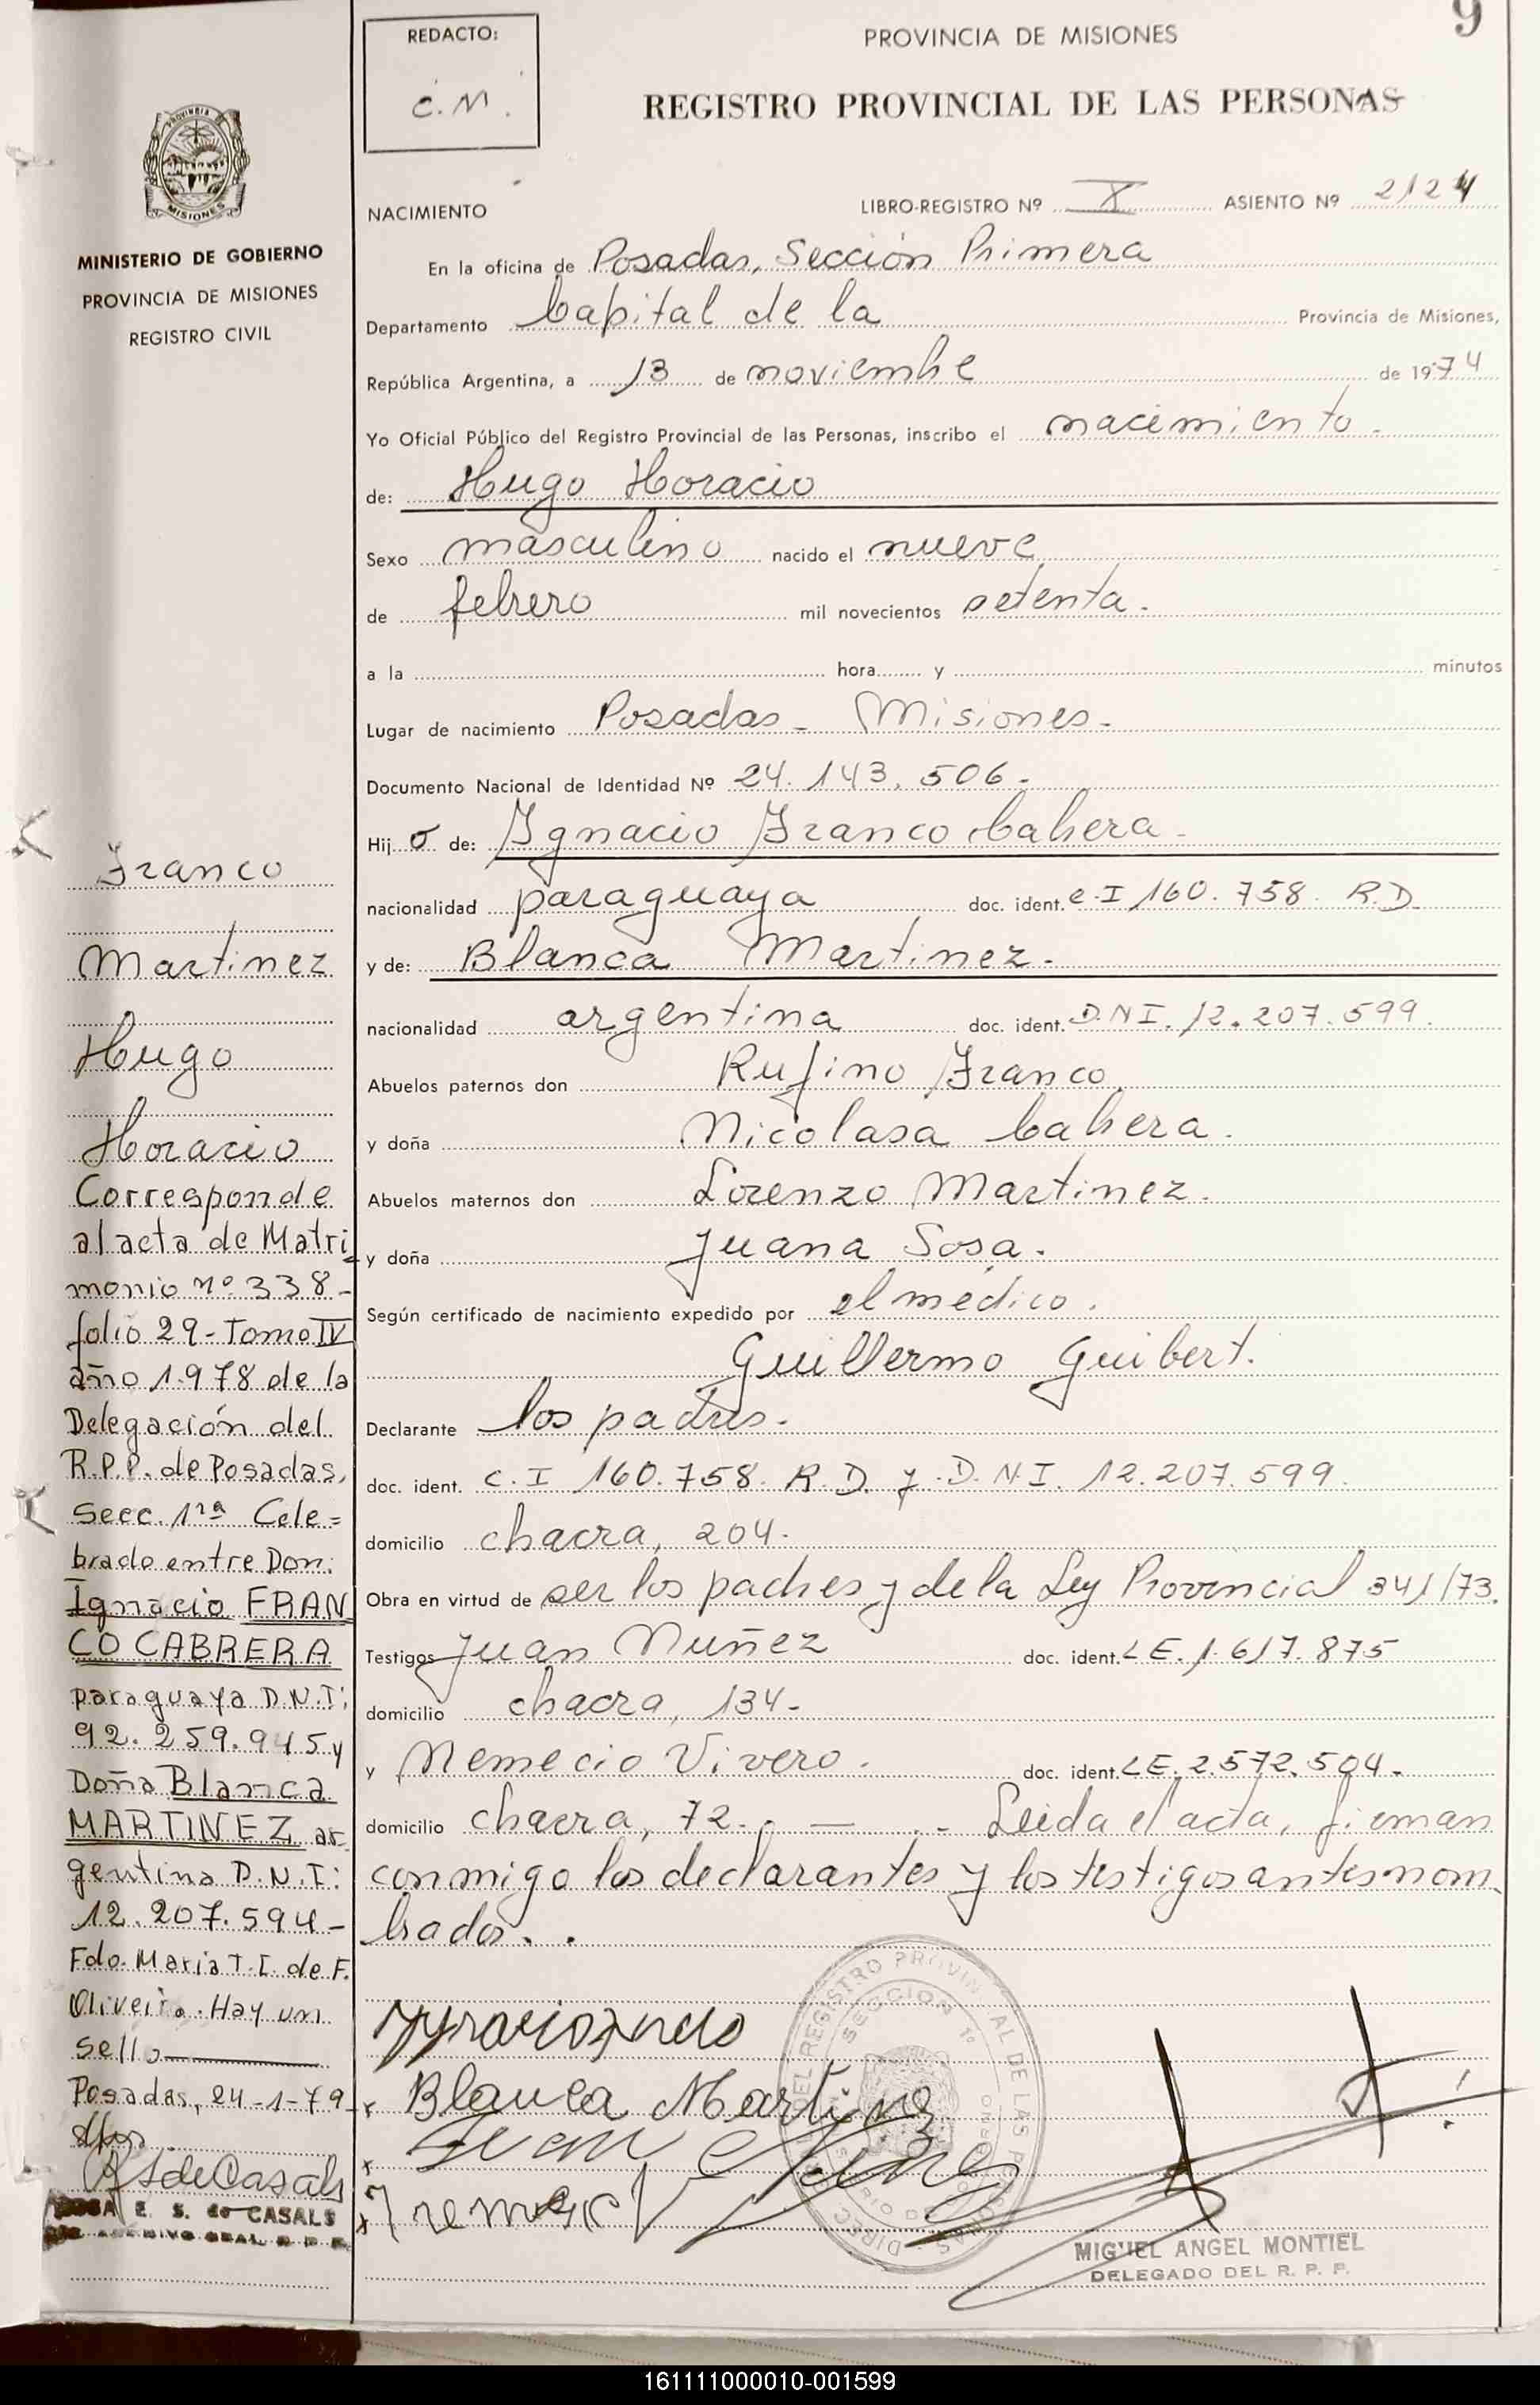 9
REDACTO:
C.M.
PROVINCIA DE MISIONES
REGISTRO PROVINCIAL DE LAS PERSONAS
PROVINCIA DE
MISIONES
MINISTERIO DE GOBIERNO
PROVINCIA DE MISIONES
REGISTRO CIVIL
NACIMIENTO
LIBRO-REGISTRO Nº X ASIENTO Nº 2124
En la oficina de Posadas, Sección Primera
Departamento Capital de la Provincia de Misiones,
República Argentina, a 13 de noviembre de 1974
Yo Oficial Público del Registro Provincial de las Personas, inscribo el nacimiento.
de: Hugo Horacio
Sexo masculino nacido el nueve
de febrero mil novecientos setenta.
a la hora y minutos
Lugar de nacimiento Posadas - Misiones.
Documento Nacional de Identidad Nº 24.143.506.
Hijo de: Ignacio Franco Cabrera.
nacionalidad paraguaya doc. ident. C.I 160.758. R.D.
y de: Blanca Martinez.
nacionalidad argentina doc. ident. D.N.I. 12.207.599.
Abuelos paternos don Rufino Franco,
y doña Nicolasa Cabrera.
Abuelos maternos don Lorenzo Martinez.
y doña Juana Sosa.
Según certificado de nacimiento expedido por el médico.
Guillermo Guibert.
Declarante los padres.
doc. ident. C.I 160.758. R.D. y D.N.I. 12.207.599.
domicilio chacra, 204.
Obra en virtud de ser los padres y de la Ley Provincial 341/73.
Testigos Juan Nuñez doc. ident. L E. 1.617.875
domicilio chacra, 134-
y Nemecio Vivero. doc. ident. L E. 2.572.504.
domicilio chacra, 72. . — . - Leida el acta, firman
conmigo los declarantes y los testigos antes nom
brados. .
Franco
Martinez
Hugo
Horacio
Corresponde
al acta de Matri
monio nº 338-
folio 29-Tomo IV
año 1.978 de la
Delegación del
R.P.P. de Posadas,
Secc. 1ra Cele=
brado entre Don:
Ignacio FRAN
CO CABRERA
paraguaya D.N.I:
92.259.945 y
Doña Blanca
MARTINEZ ar-
gentina D.N.I:
12.207.594-
Fdo. Maria T. I. de F.
Oliveira. Hay un
sello
Posadas, 24-1-79
RSdeCasals
E. S. de CASALS
x Blanca Martinez
x Juan Nuñez
x
SECCION 1º
MIGUEL ANGEL MONTIEL
DELEGADO DEL R. P. P.
161111000010-001599